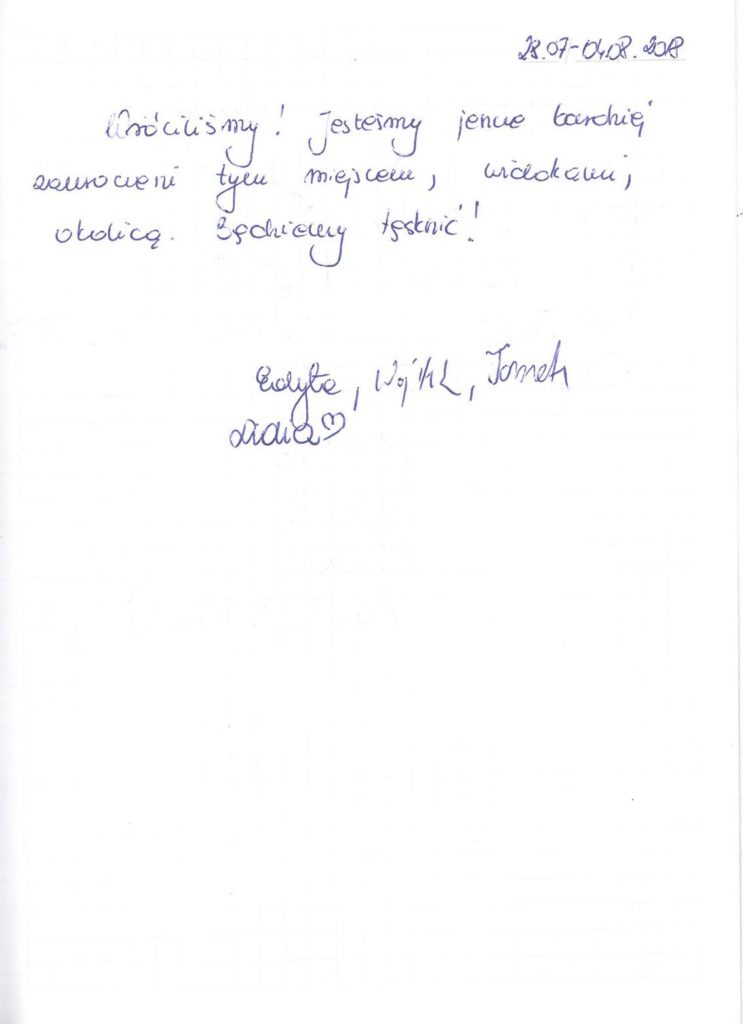 28.07-04.08.2018
Wróciliśmy! Jesteśmy jeszcze bardziej
zauroczeni tym miejscem, widokami,
okolicą. Będziemy tęsknić!
Edyta, Wojtek, Tomek
Lidia♡